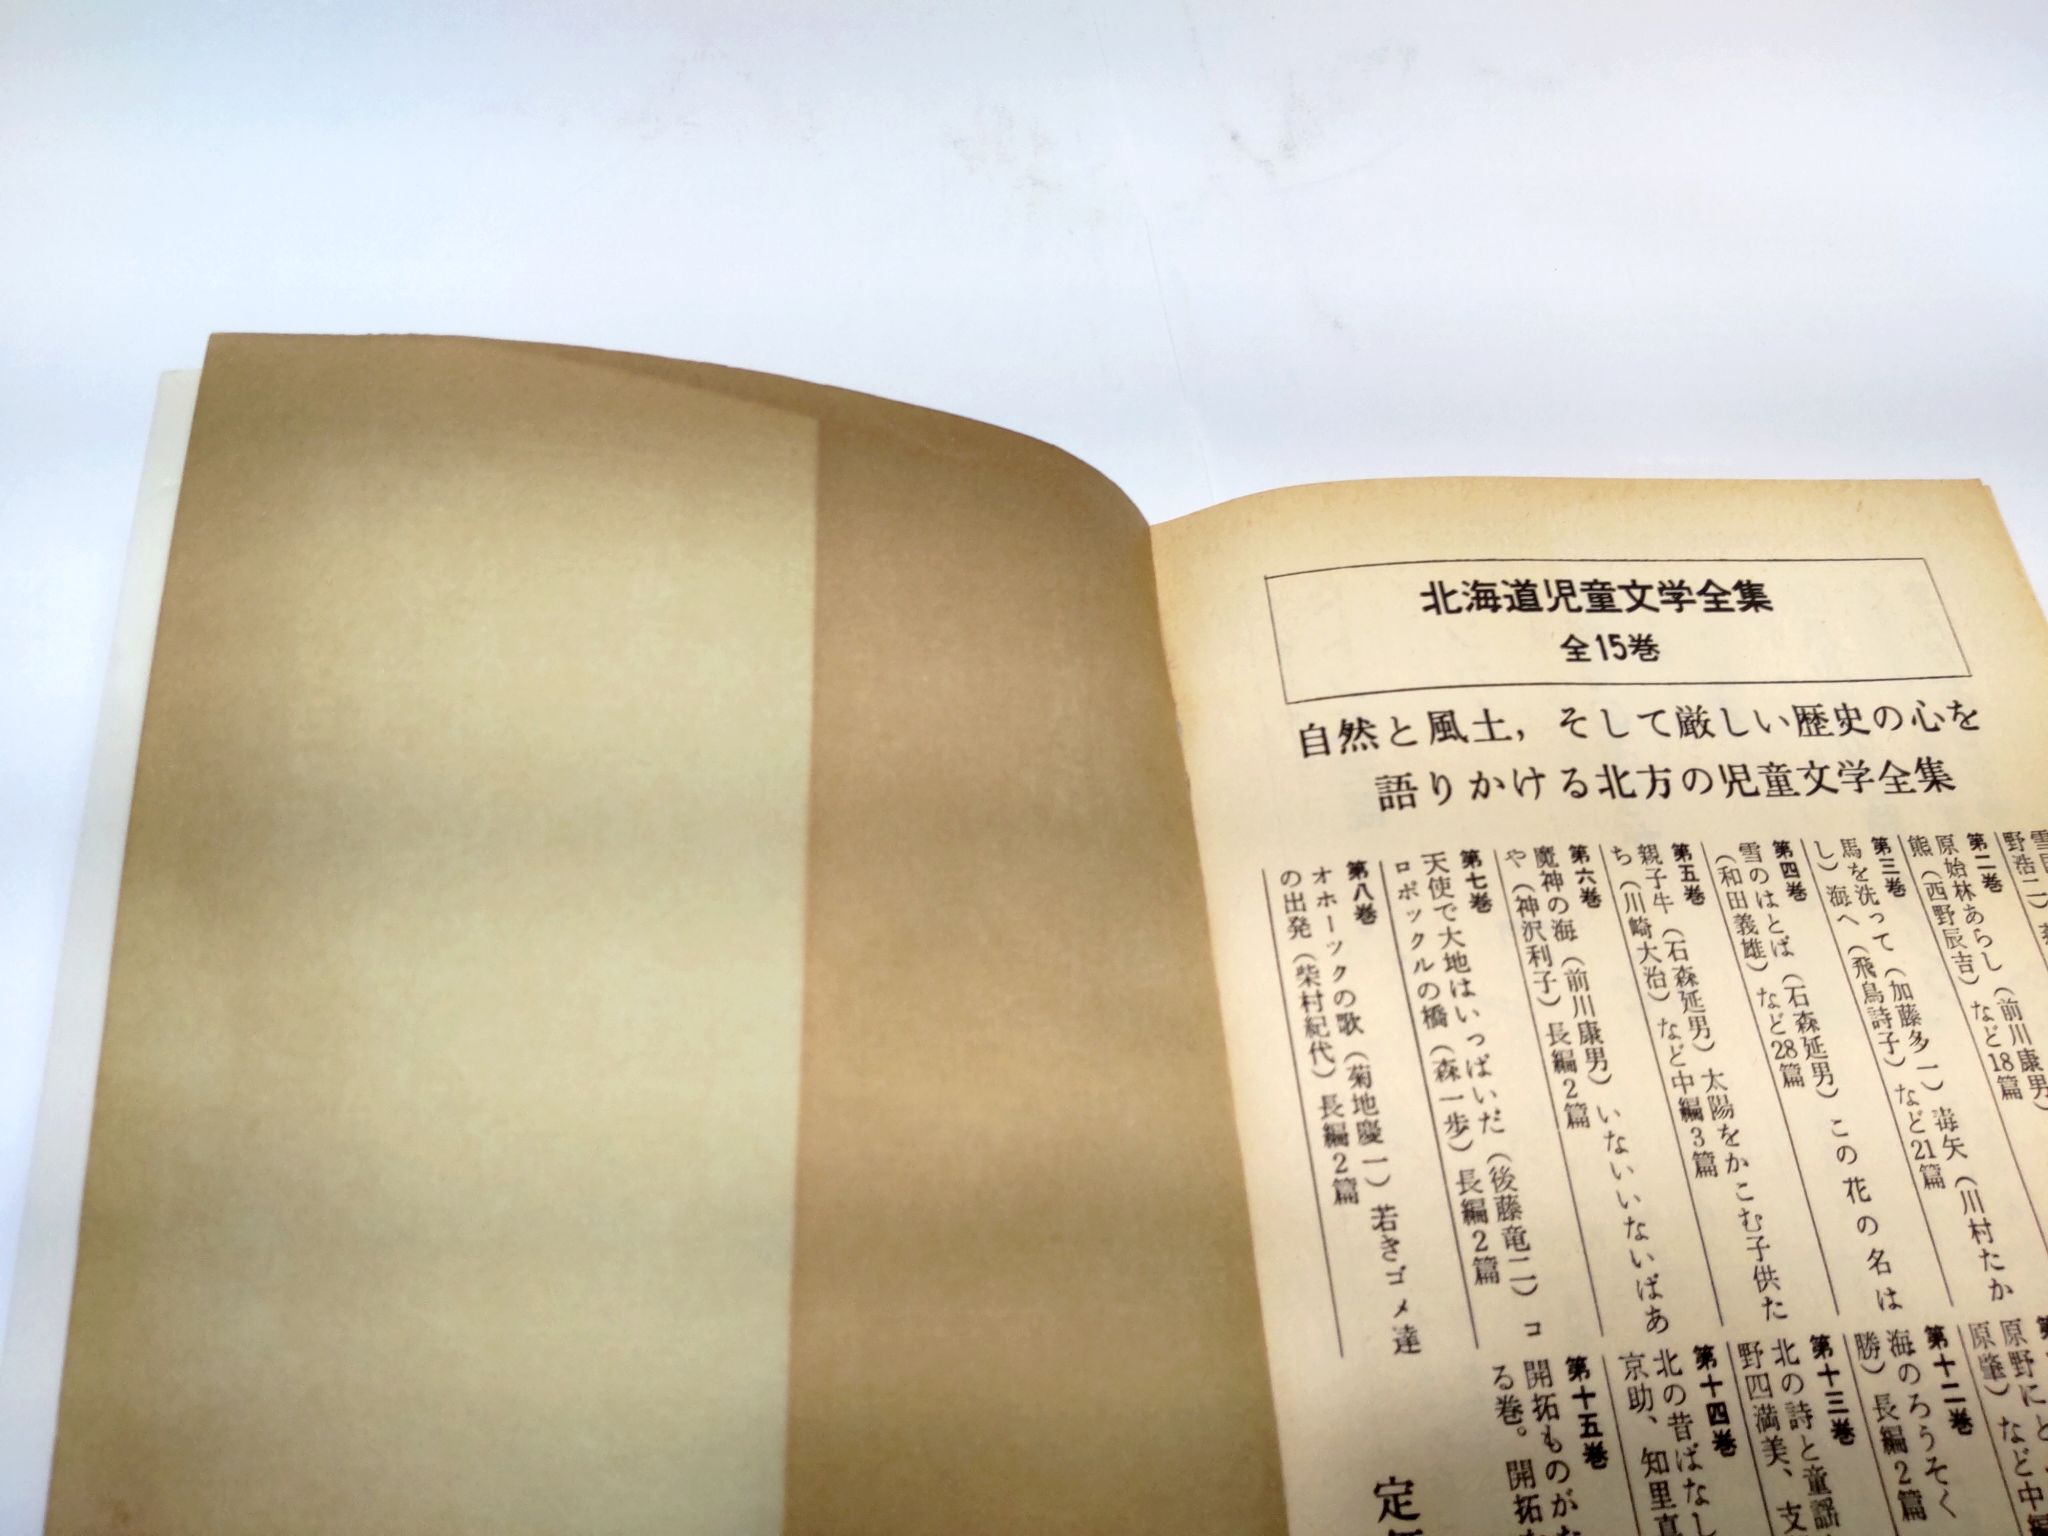 北海道児童文学全集
全15巻
自然と風土，そして厳しい歴史の心を
語りかける北方の児童文学全集
野浩二）
第二巻
原始林あらし（前川康男）
熊（西野辰吉）など18篇
第三巻
馬を洗って（加藤多一）毒矢（川村たか
し）海へ（飛鳥詩子）など21篇
第四巻
雪のはとば（石森延男）この花の名は
（和田義雄）など28篇
第五巻
親子牛（石森延男）太陽をかこむ子供た
ち（川崎大治）など中編3篇
第六巻
魔神の海（前川康男）いないいないばあ
や（神沢利子）長編2篇
第七巻
天使で大地はいっぱいだ（後藤竜二）コ
ロボックルの橋（森一歩）長編2篇
第八巻
オホーツクの歌（菊地慶一）若きゴメ達
の出発（柴村紀代）長編2篇
原野に
原肇）など中編
第十二巻
海のろうそく
勝）長編2篇
第十三巻
北の詩と童謡
野四満美、支
第十四巻
北の昔ばなし
京助、知里真
第十五巻
開拓ものがた
る巻。開拓
定